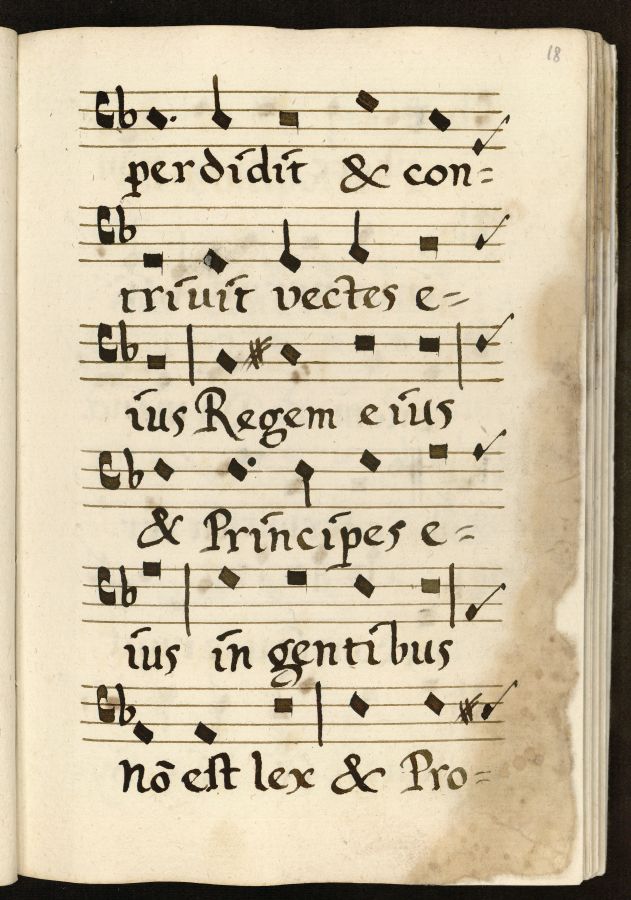 18
perdidit & con=
trivit vectes e=
ius Regem eius
& Principes e=
ius in gentibus
nō est lex & Pro=